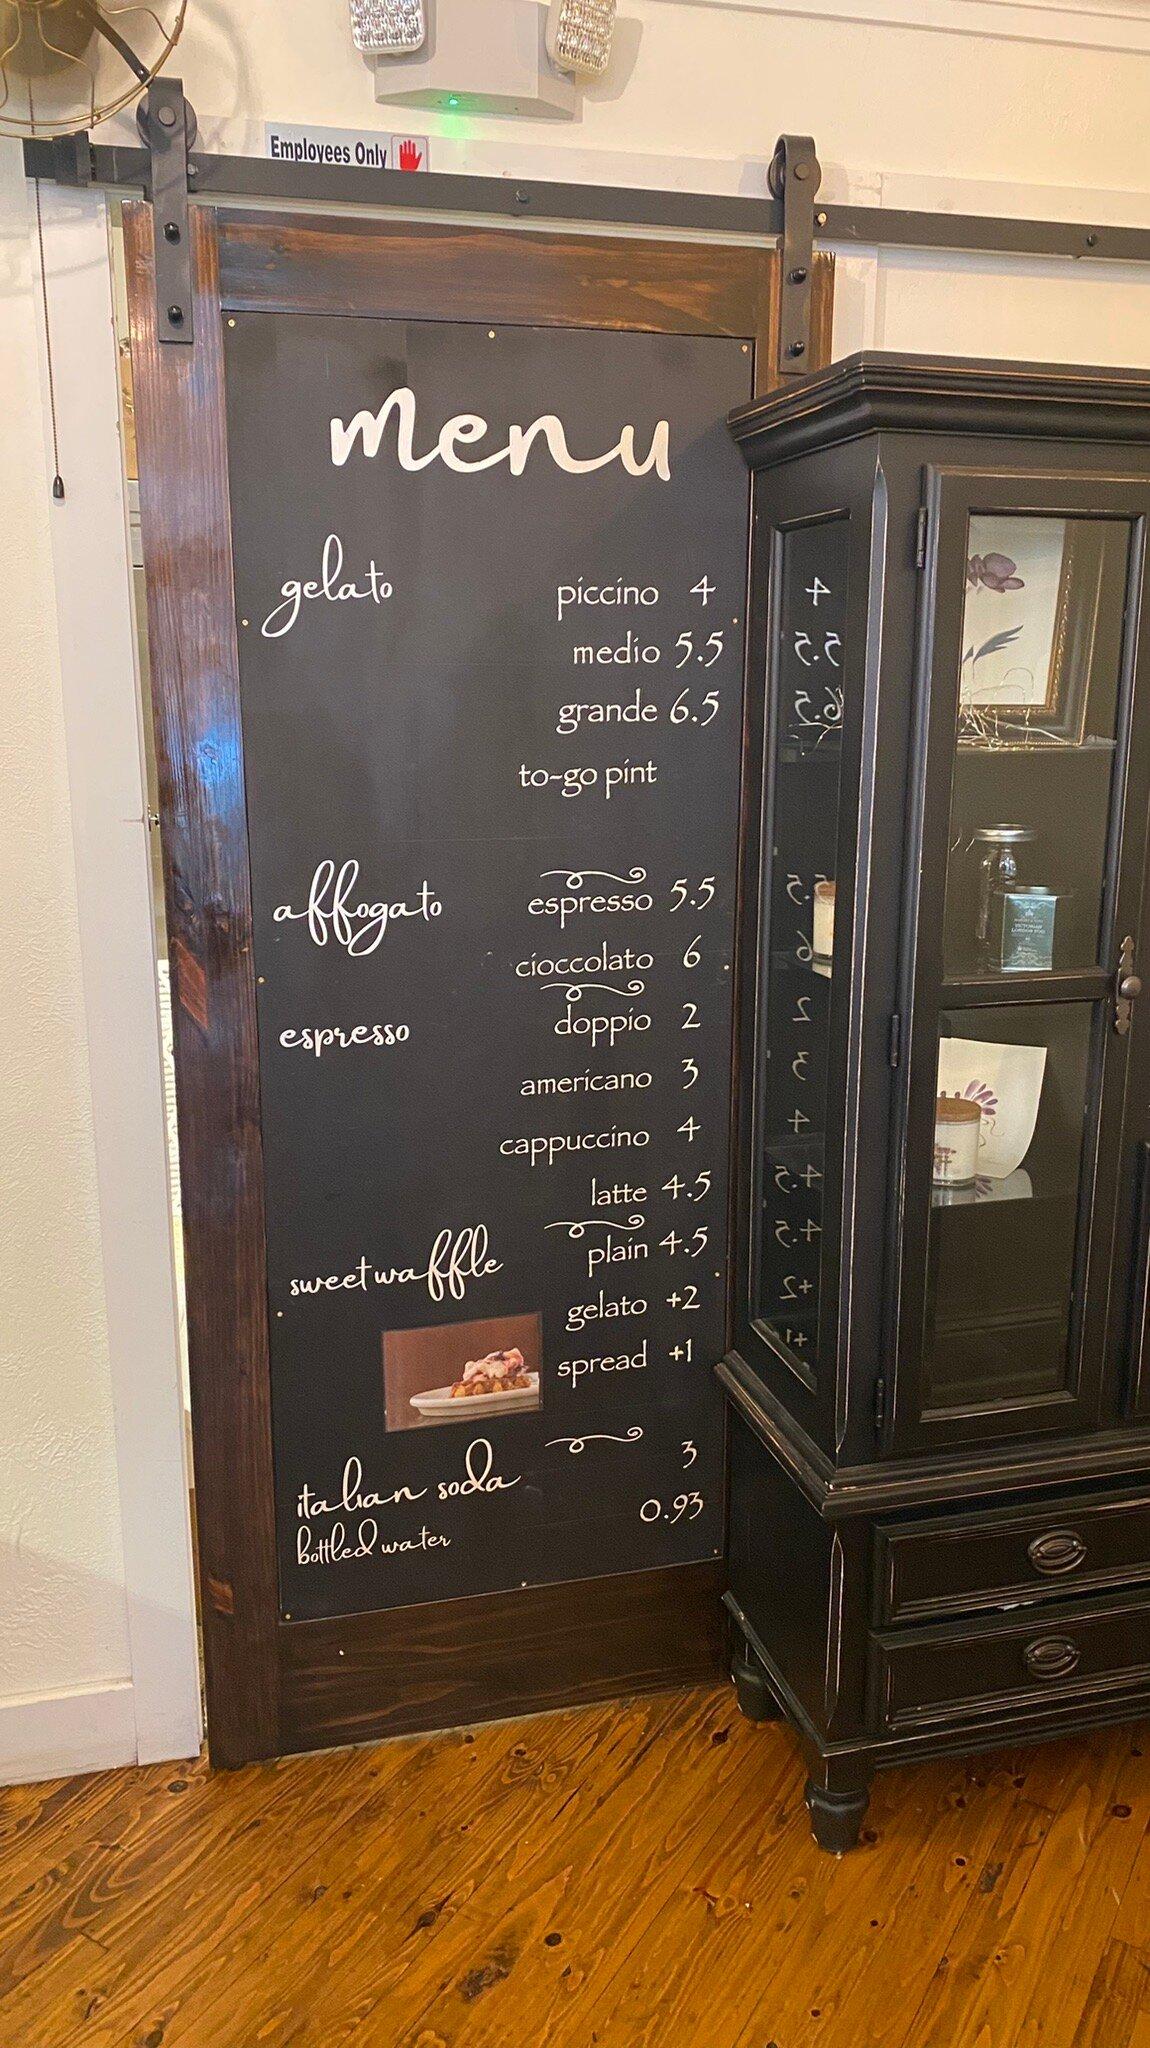 Employees Only
menu
gelato piccino 4
medio 5.5
grande 6.5
to-go pint
affogato espresso 5.5
cioccolato 6
espresso doppio 2
americano 3
cappuccino 4
latte 4.5
sweet waffle plain 4.5
gelato +2
spread +1
italian soda 3
bottled water 0.93